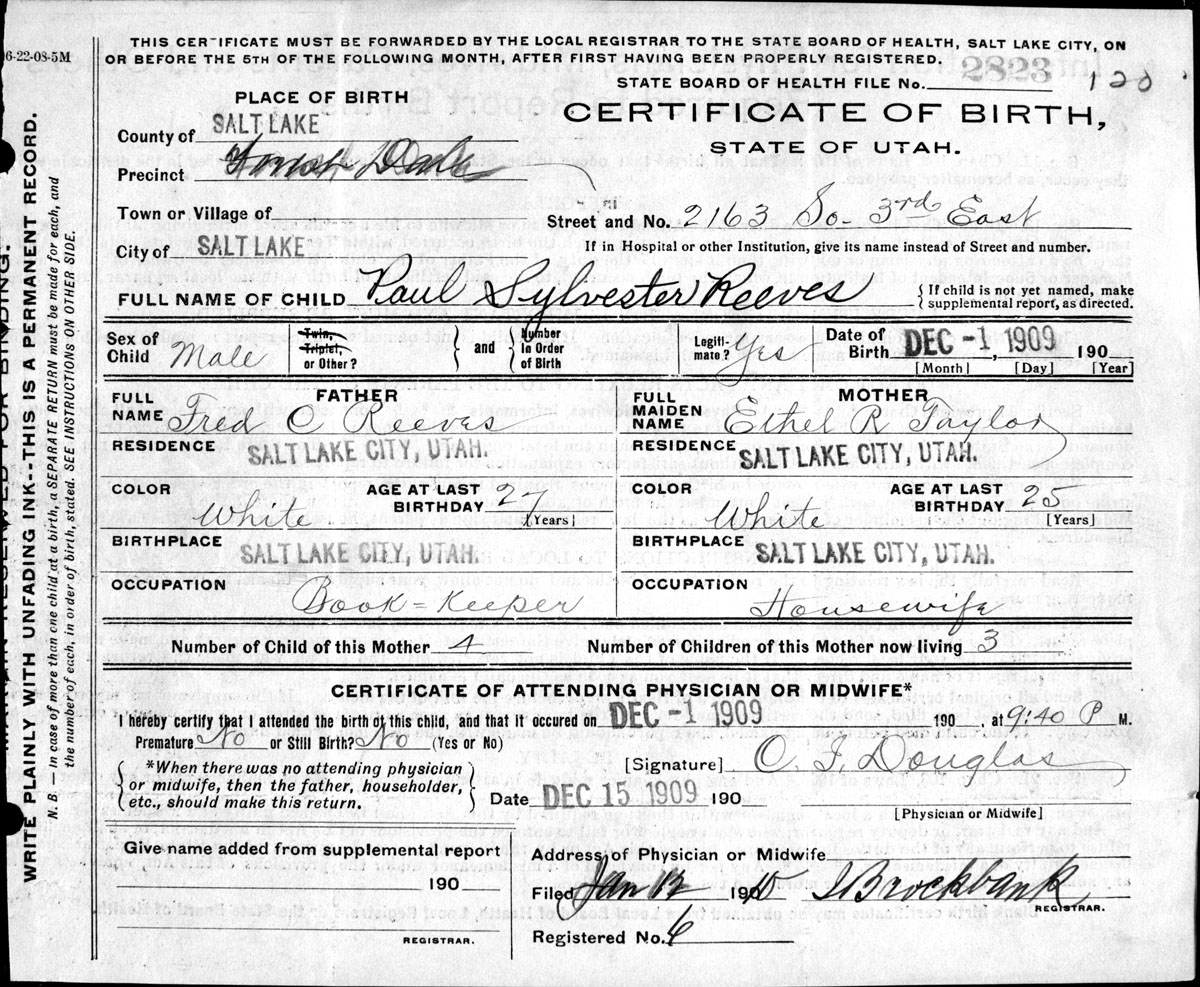 06-22-08-5M
THIS CERTIFICATE MUST BE FORWARDED BY THE LOCAL REGISTRAR TO THE STATE BOARD OF HEALTH, SALT LAKE CITY, ON
OR BEFORE THE 5TH OF THE FOLLOWING MONTH, AFTER FIRST HAVING BEEN PROPERLY REGISTERED.
2823
STATE BOARD OF HEALTH FILE No. 120
PLACE OF BIRTH
CERTIFICATE OF BIRTH,
STATE OF UTAH.
County of SALT LAKE
Precinct
Town or Village of
Street and No. 2163 So- 3rd East
City of SALT LAKE
If in Hospital or other Institution, give its name instead of Street and number.
FULL NAME OF CHILD Paul Sylvester Reeves
If child is not yet named, make
supplemental report, as directed.
Sex of Child Male
Twin, Triplet, or Other?
and
Number In Order of Birth
Legitimate? Yes
Date of Birth DEC -1, 1909 190
[Month] [Day] [Year]
FATHER
FULL NAME Fred C Reeves
MOTHER
FULL MAIDEN NAME Ethel R Taylor
RESIDENCE SALT LAKE CITY, UTAH.
RESIDENCE SALT LAKE CITY, UTAH.
COLOR White
AGE AT LAST BIRTHDAY 27 [Years]
COLOR White
AGE AT LAST BIRTHDAY 25 [Years]
BIRTHPLACE SALT LAKE CITY, UTAH.
BIRTHPLACE SALT LAKE CITY, UTAH.
OCCUPATION Book=Keeper
OCCUPATION Housewife
Number of Child of this Mother 4
Number of Children of this Mother now living 3
CERTIFICATE OF ATTENDING PHYSICIAN OR MIDWIFE*
I hereby certify that I attended the birth of this child, and that it occured on DEC -1 1909 190 , at 9:40 P M.
Premature No or Still Birth? No (Yes or No)
*When there was no attending physician
or midwife, then the father, householder,
etc., should make this return.
[Signature] C. F. Douglas
Date DEC 15 1909 190
[Physician or Midwife]
Give name added from supplemental report
190
REGISTRAR.
Address of Physician or Midwife
Filed Jan 12 190 Brockbank
REGISTRAR.
Registered No. 6
WRITE PLAINLY WITH UNFADING INK--THIS IS A PERMANENT RECORD.
N. B. — In case of more than one child at a birth, a SEPARATE RETURN must be made for each, and
the number of each, in order of birth, stated. SEE INSTRUCTIONS ON OTHER SIDE.